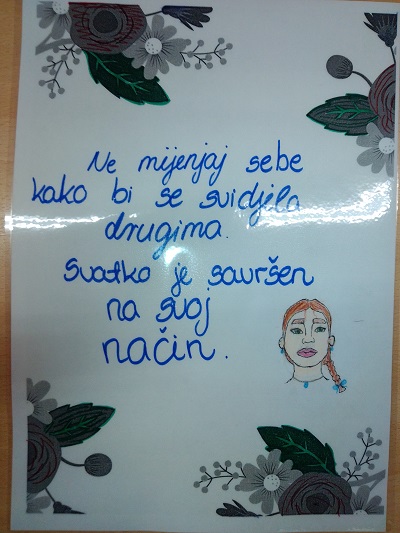 Ne mijenjaj sebe
kako bi se svidjela
drugima.
Svatko je savršen
na svoj
način.